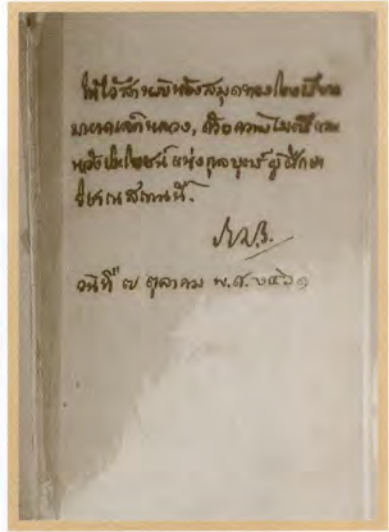 ให้ไว้สำหรับห้องสมุดของโรงเรียน
มหาดเล็กหลวง, ด้วยความไมตรีและ
หวังประโยชน์แห่งกุลบุตร์ผู้ศึกษา
ในสถานนี้.
วันที่ ๗ ตุลาคม พ.ศ. ๒๔๖๑